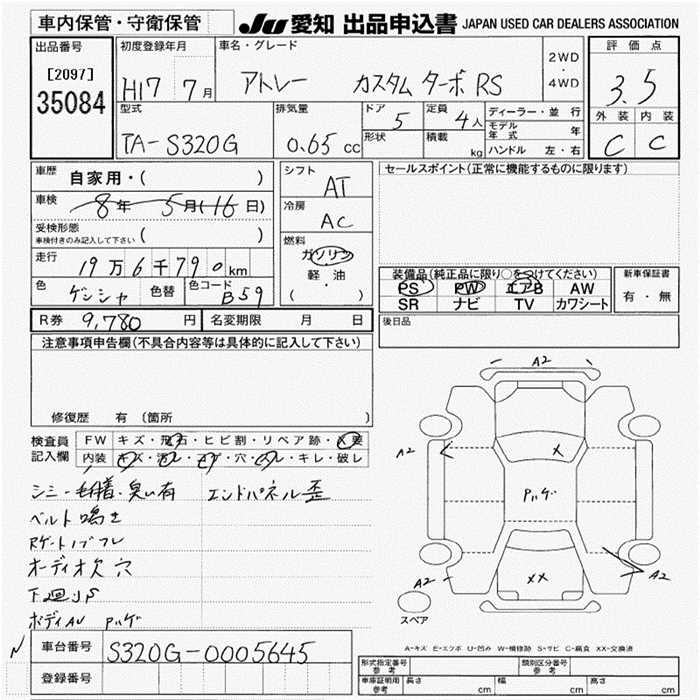 車内保管・守衛保管
JU 愛知 出品申込書 JAPAN USED CAR DEALERS ASSOCIATION
出品番号
[2097]
35084
初度登録年月
H17 7月
車名・グレード
アトレー カスタムターボRS
2WD
・
4WD
評価点
3.5
外装 内装
C C
型式
TA-S320G
排気量
0.65 cc
ドア
5
形状
定員
4人
積載
kg
ディーラー・並行
モデル年式 年
ハンドル 左・右
車歴
自家用・( )
車検
8年 5月(16日)
受検形態
車検付きのみ記入して下さい ( )
走行
19万6千790km
色
ゲンシャ
色替
色コード
B59
シフト
AT
冷房
AC
燃料
ガソリン
軽・油
( )
セールスポイント(正常に機能するものに限ります)
装備品(純正品に限り○をつけてください)
PS PW エアB AW
SR ナビ TV カワシート
新車保証書
有・無
R券 9,780円
名変期限 月 日
後日品
注意事項申告欄(不具合内容等は具体的に記入して下さい)
修復歴 有 〔箇所
検査員
記入欄
FW キズ・飛石・ヒビ割・リペア跡・X要
内装 キズ・汚レ・コゲ・穴・スレ・キレ・破レ
シミ・毛付着・臭い有 エンドパネル歪
ベルト鳴き
Rゲートノブフレ
オーディオ欠 穴
下廻りS
ボディAU Pハゲ
A2
A2
X
Pハゲ
XX
A2
A2
スペア
A-キズ E-エクボ U-凹み W-補修跡 S-サビ C-腐食 XX-交換済
車台番号
S320G-0005645
登録番号
形式指定番号
参考
類別区分番号
参考
車庫証明用
参考
長さ cm
幅 cm
高さ cm